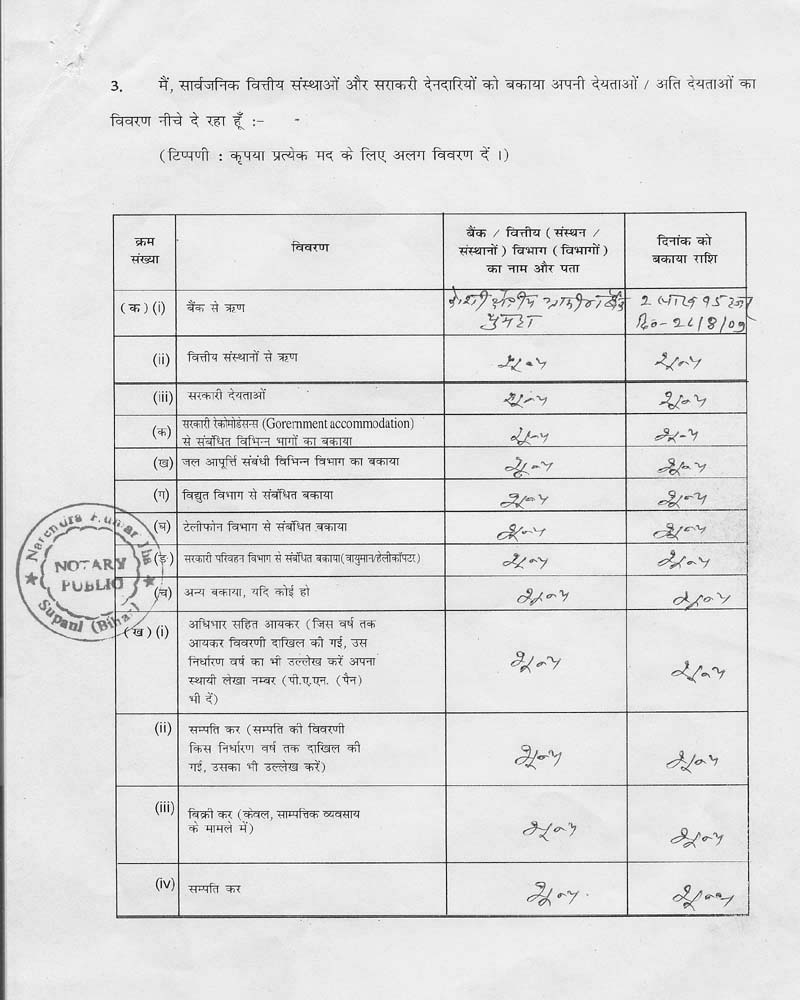 3. मैं, सार्वजनिक वित्तीय संस्थाओं और सराकरी देनदारियों को बकाया अपनी देयताओं / अति देयताओं का
विवरण नीचे दे रहा हूँ :- -
(टिप्पणी : कृपया प्रत्येक मद के लिए अलग विवरण दें ।)
क्रम संख्या विवरण बैंक / वित्तीय (संस्थन / संस्थानों) विभाग (विभागों) का नाम और पता दिनांक को बकाया राशि
(क) (i) बैंक से ऋण क्षेत्रीय 2 लाख 15
(ii) वित्तीय संस्थानों से ऋण शून्य शून्य
(iii) सरकारी देयताओं शून्य शून्य
(क) सरकारी रेकोमोडेसन्स (Gorernment accommodation)
से संबंधित विभिन्न भागों का बकाया शून्य शून्य
(ख) जल आपूर्त्ति संबंधी विभिन्न विभाग का बकाया शून्य शून्य
(ग) विद्युत विभाग से संबंधित बकाया शून्य शून्य
(घ) टेलीफोन विभाग से संबंधित बकाया शून्य शून्य
(ङ) सरकारी परिवहन विभाग से संबंधित बकाया(वायुमान/हेलीकॉपटर) शून्य शून्य
(च) अन्य बकाया, यदि कोई हो शून्य शून्य
(ख) (i) अधिभार सहित आयकर (जिस वर्ष तक
आयकर विवरणी दाखिल की गई, उस
निर्धारण वर्ष का भी उल्लेख करें अपना
स्थायी लेखा नम्बर (पी.ए.एन. (पैन)
भी दें) शून्य शून्य
(ii) सम्पति कर (सम्पति की विवरणी
किस निर्धारण वर्ष तक दाखिल की
गई, उसका भी उल्लेख करें) शून्य शून्य
(iii) बिक्री कर (केवल, साम्पत्तिक व्यवसाय
के मामले में) शून्य शून्य
(iv) सम्पति कर शून्य शून्य
Narendra Kumar Jha
NOTARY
PUBLIC
Supaul (Bihar)